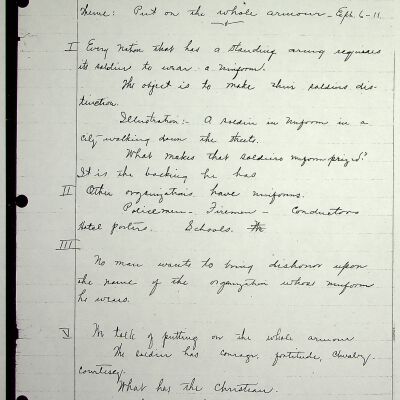 Theme: Put on the whole armour - Eph. 6-11.
I Every nation that has a standing army requires
its soldier to wear a uniform.
The object is to make their soldiers dis-
tinction.
Illustration:- A soldier in uniform in a
city walking down the streets.
What makes that soldiers uniform prized?
It is the backing he has
II Other organizations have uniforms.
Policemen - Firemen - Conductors
Hotel porters. Schools. The
III
No man wants to bring dishonor upon
the name of the organization whose uniform
he wears.
V We talk of putting on the whole armour
The soldier has courage, fortitude, chivalry
courtesey.
What has the Christian.